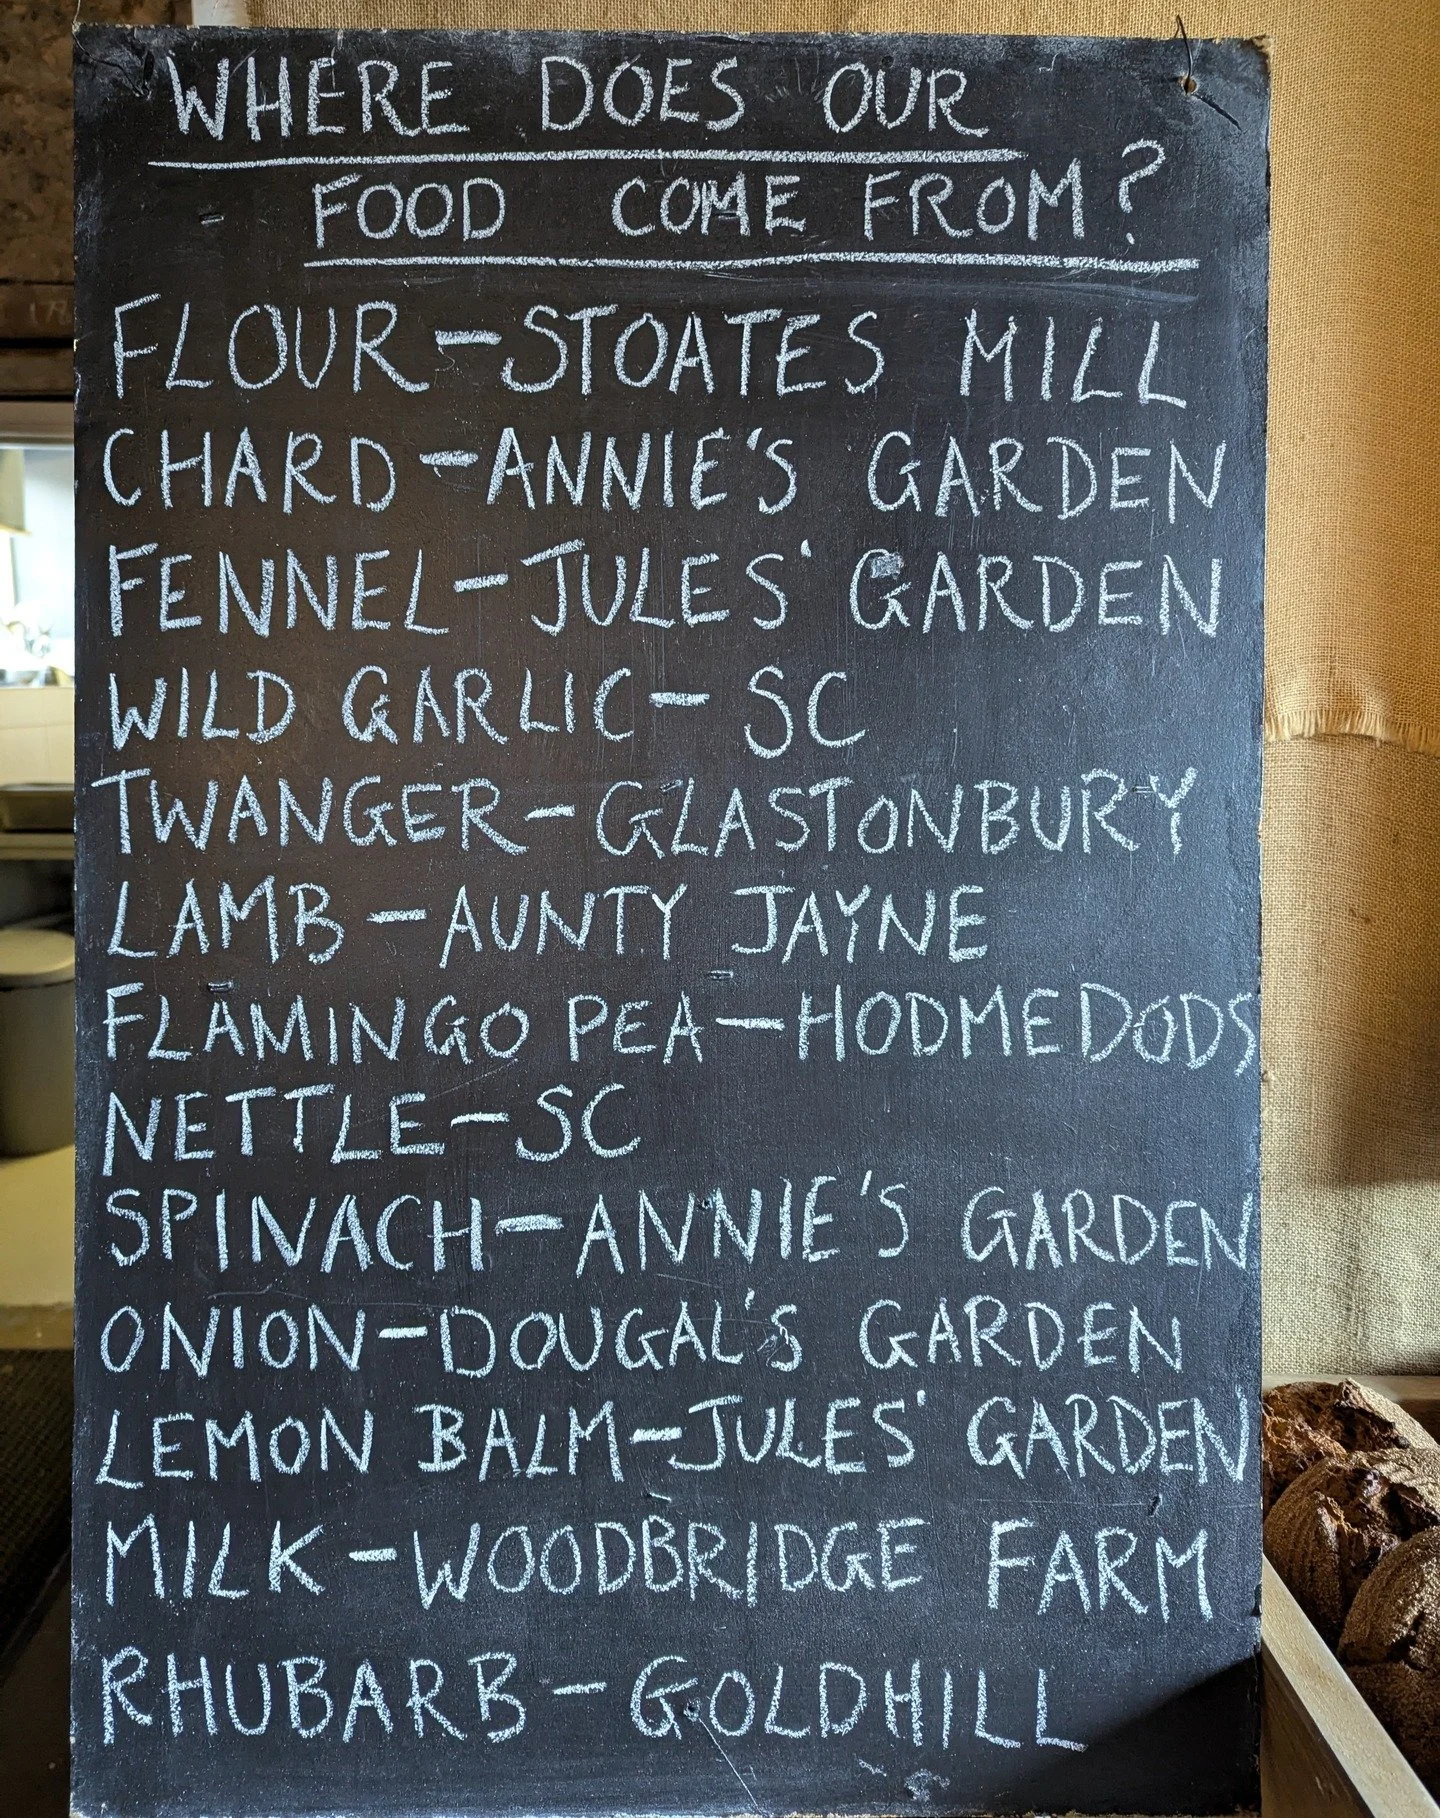 WHERE DOES OUR
FOOD COME FROM?
FLOUR - STOATES MILL
CHARD - ANNIE'S GARDEN
FENNEL - JULES' GARDEN
WILD GARLIC - SC
TWANGER - GLASTONBURY
LAMB - AUNTY JAYNE
FLAMINGO PEA - HODMEDODS
NETTLE - SC
SPINACH - ANNIE'S GARDEN
ONION - DOUGAL'S GARDEN
LEMON BALM - JULES' GARDEN
MILK - WOODBRIDGE FARM
RHUBARB - GOLDHILL